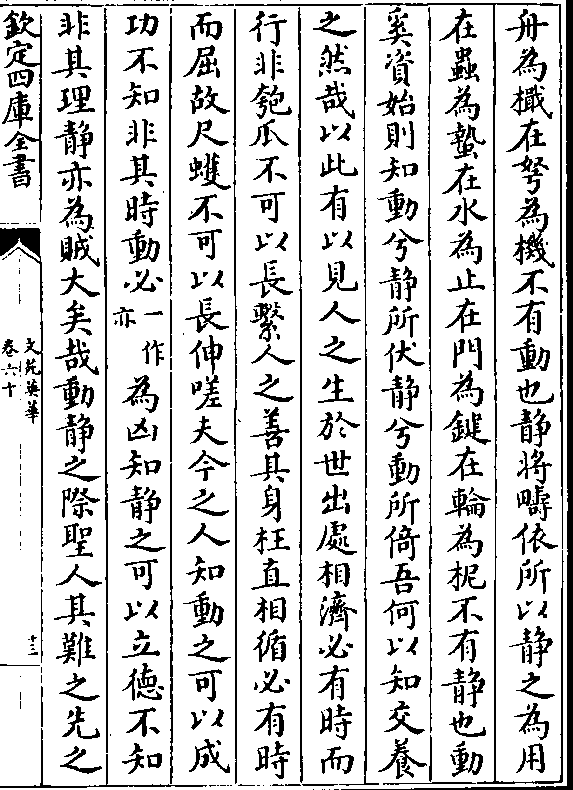 舟為檝在弩為機不有動也静將疇依所以静之為用
在蟲為蟄在水為止在門為鍵在輪為柅不有静也動
奚資始則知動兮静所伏静兮動所倚吾何以知交養
之然哉以此有以見人之生於世出處相濟必有時而
行非匏瓜不可以長繫人之善其身枉直相循必有時
而屈故尺蠖不可以長伸嗟夫今之人知動之可以成
功不知非其時動必一作亦為凶知静之可以立德不知
非其理静亦為賊大矣哉動静之際聖人其難之先之
欽定四庫全書
文苑英華
卷六十
十三